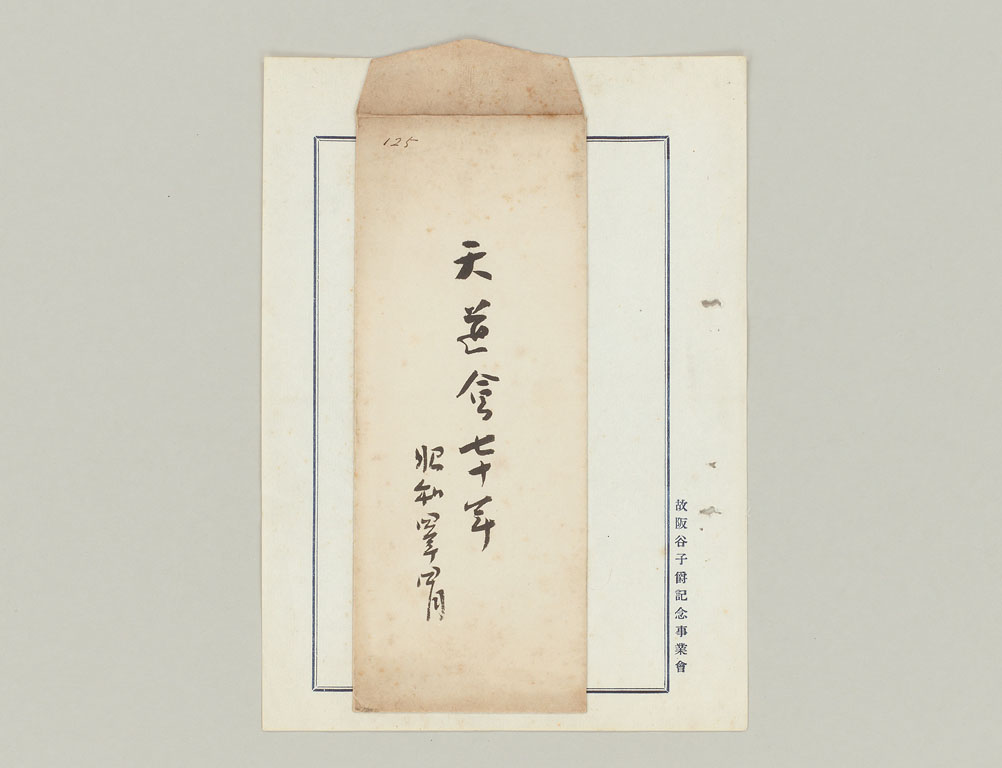 125
天道會七十年
昭和四年四月
故阪谷子爵記念事業會